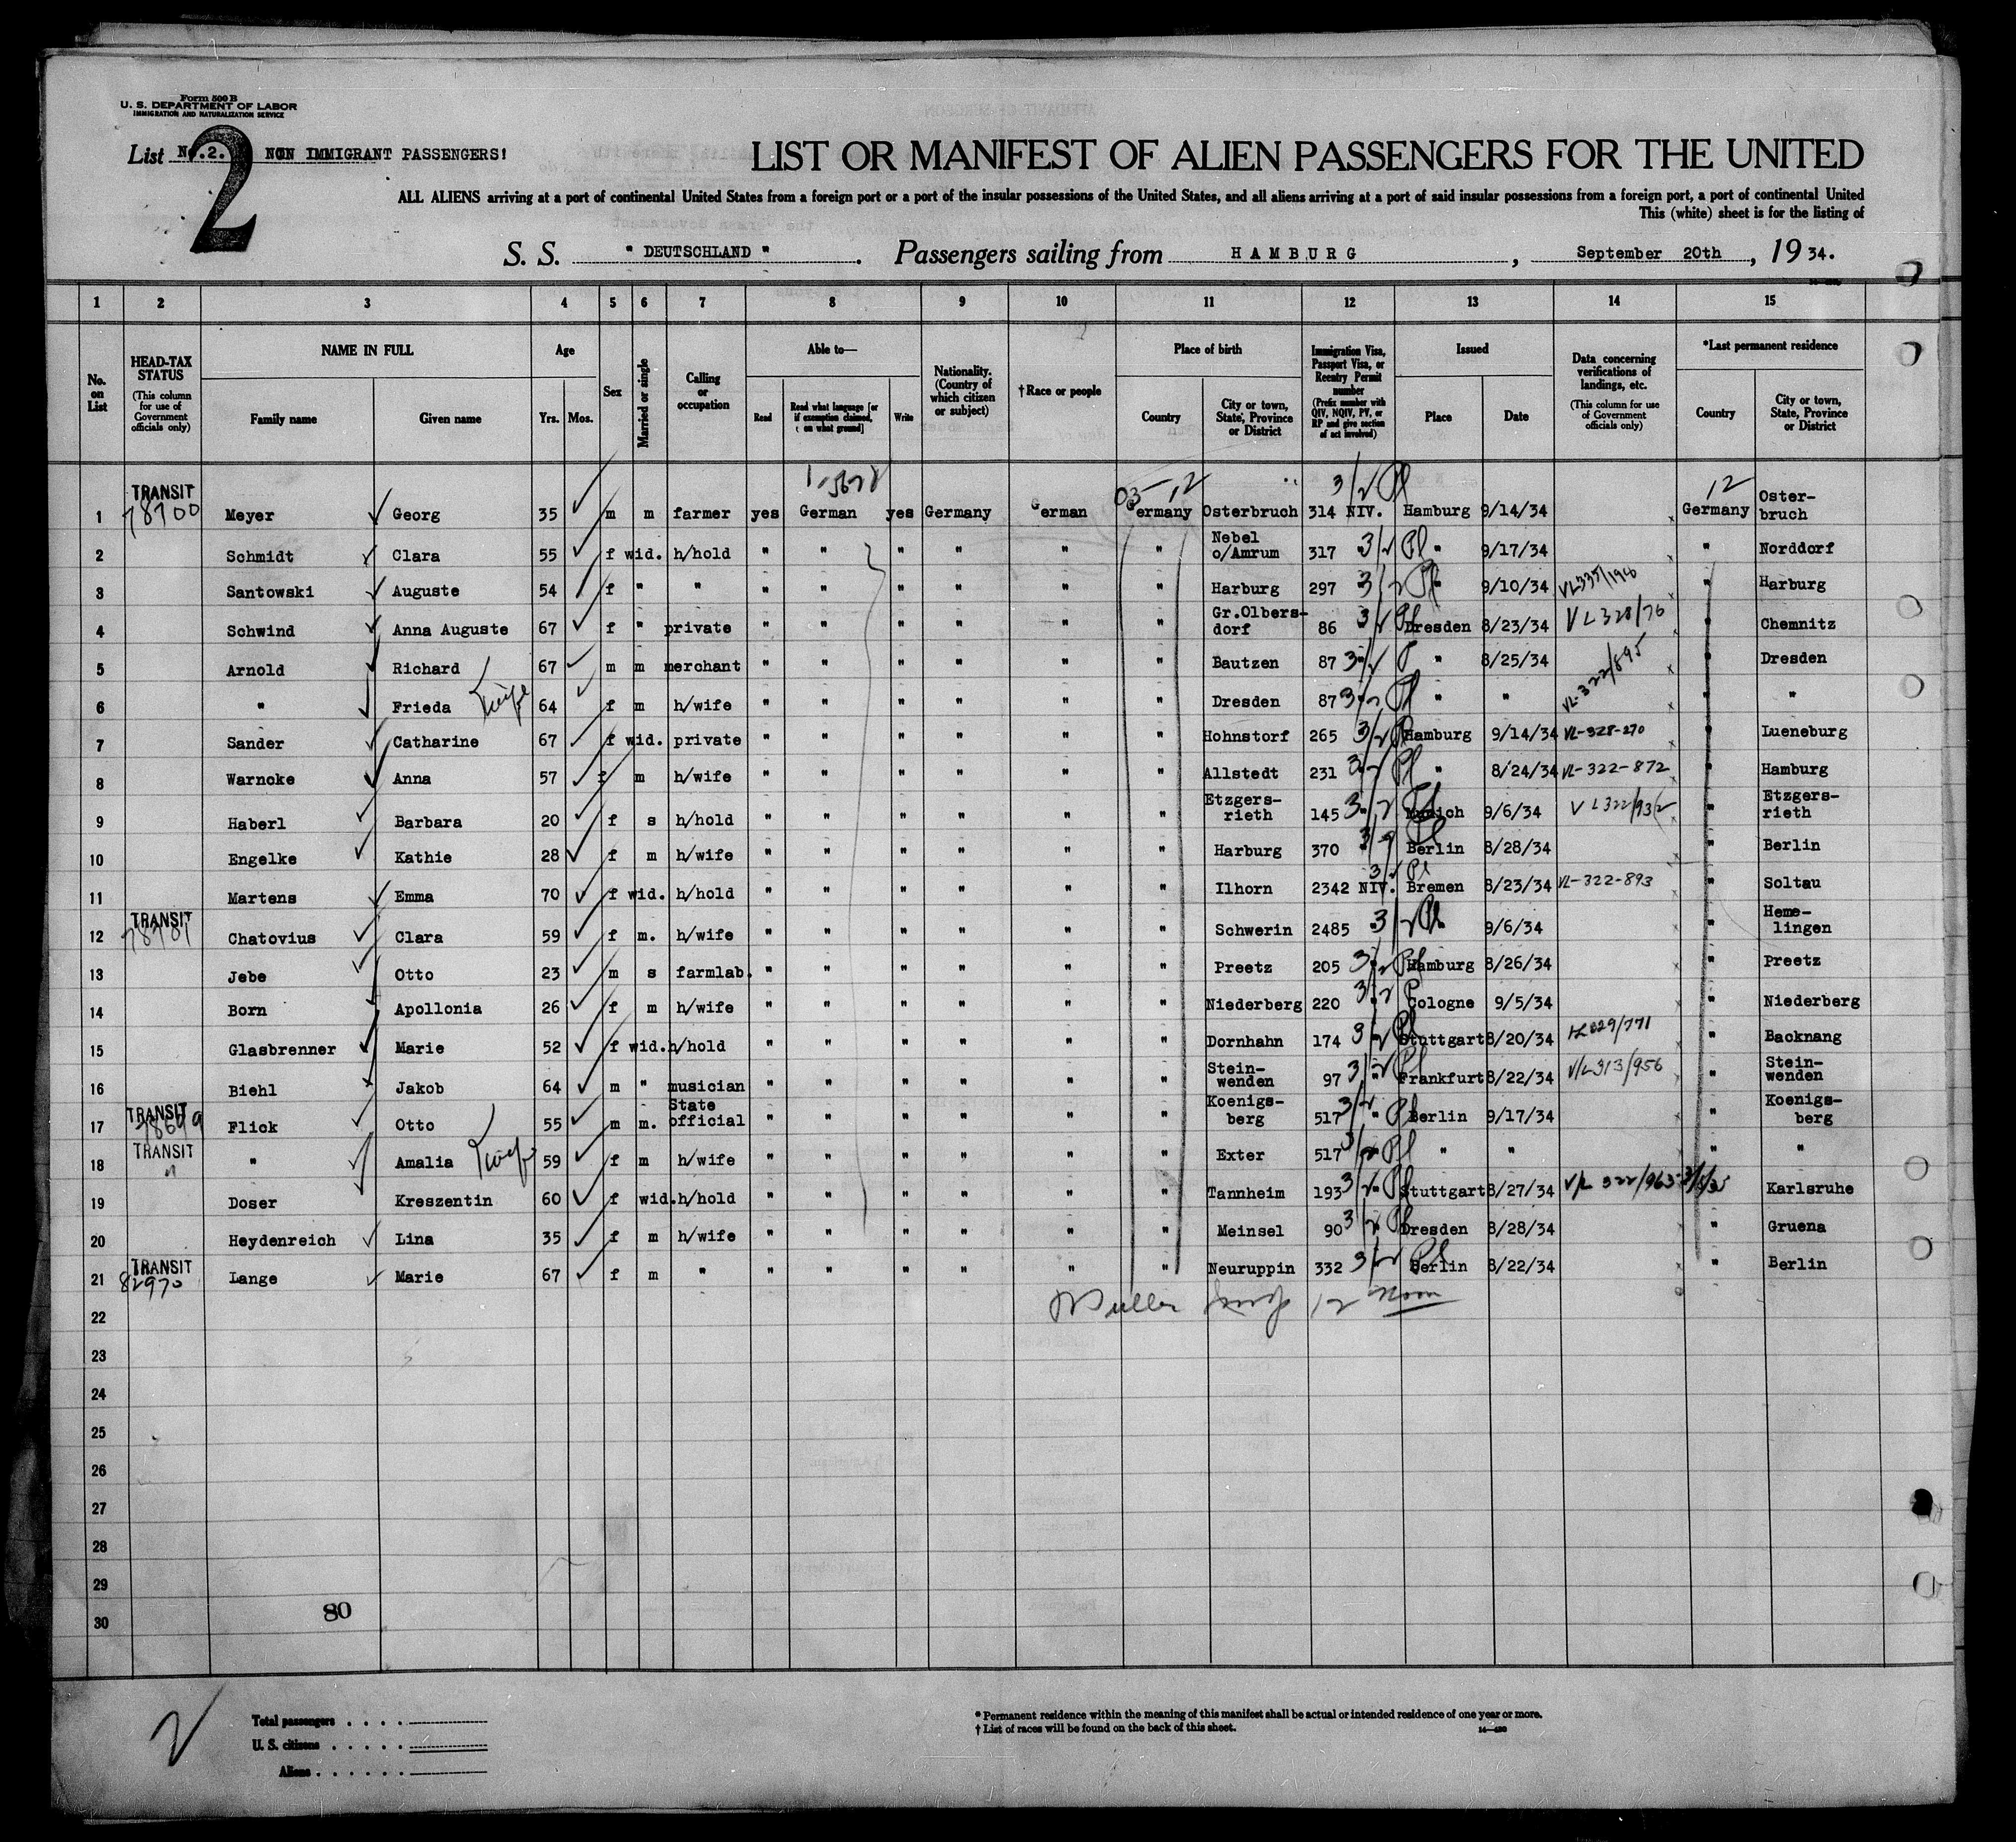 Form 500 B
U. S. DEPARTMENT OF LABOR
IMMIGRATION AND NATURALIZATION SERVICE
List No.2. NON IMMIGRANT PASSENGERS!
2
LIST OR MANIFEST OF ALIEN PASSENGERS FOR THE UNITED
ALL ALIENS arriving at a port of continental United States from a foreign port or a port of the insular possessions of the United States, and all aliens arriving at a port of said insular possessions from a foreign port, a port of continental United
This (white) sheet is for the listing of
S. S. " DEUTSCHLAND " . Passengers sailing from HAMBURG , September 20th , 19 34.
1 2 3 4 5 6 7 8 9 10 11 12 13 14 15
No. on List
HEAD-TAX STATUS (This column for use of Government officials only)
NAME IN FULL Family name Given name
Age Yrs. Mos.
Sex
Married or single
Calling or occupation
Able to— Read Read what language [or if exemption claimed, on what ground] Write
Nationality. (Country of which citizen or subject)
†Race or people
Place of birth Country City or town, State, Province or District
Immigration Visa, Passport Visa, or Reentry Permit number (Prefix number with QIV, NQIV, PV, or RP and give section of act involved)
Issued Place Date
Data concerning verifications of landings, etc. (This column for use of Government officials only)
*Last permanent residence Country City or town, State, Province or District
03-12 3/2 Pl 12
1 TRANSIT 78700 Meyer Georg 35 m m farmer yes German yes Germany German Germany Osterbruch 314 NIV. Hamburg 9/14/34 Germany Oster-bruch
2 Schmidt Clara 55 f wid. h/hold " " " " " " Nebel o/Amrum 317 " 3/2 Pl " 9/17/34 " Norddorf
3 Santowski Auguste 54 f " " " " " " " " Harburg 297 3/2 Pl " 9/10/34 VL335/198 " Harburg
4 Schwind Anna Auguste 67 f " private " " " " " " Gr.Olbers-dorf 86 3/2 Pl Dresden 8/23/34 VL328/76 " Chemnitz
5 Arnold Richard 67 m m merchant " " " " " " Bautzen 87 3/2 " 8/25/34 VL-322/895 " Dresden
6 " Frieda 64 f m h/wife " " " " " " Dresden 87 3/2 Pl " " " "
7 Sander Catharine 67 f wid. private " " " " " " Hohnstorf 265 3/2 Pl Hamburg 9/14/34 VL-328-270 " Lueneburg
8 Warncke Anna 57 f m h/wife " " " " " " Allstedt 231 3/2 Pl " 8/24/34 VL-322-872 " Hamburg
9 Haberl Barbara 20 f s h/hold " " " " " " Etzgers-rieth 145 3/2 Pl Munich 9/6/34 VL322/932 " Etzgers-rieth
10 Engelke Kathie 28 f m h/wife " " " " " " Harburg 370 3/2 Pl Berlin 8/28/34 " Berlin
11 Martens Emma 70 f wid. h/hold " " " " " " Ilhorn 2342 NIV. 3/2 Pl Bremen 8/23/34 VL-322-893 " Soltau
12 TRANSIT 78701 Chatovius Clara 59 f m. h/wife " " " " " " Schwerin 2485 3/2 Pl " 9/6/34 " Heme-lingen
13 Jebe Otto 23 m s farmlab. " " " " " " Preetz 205 3/2 Pl Hamburg 8/26/34 " Preetz
14 Born Apollonia 26 f m h/wife " " " " " " Niederberg 220 3/2 Cologne 9/5/34 " Niederberg
15 Glasbrenner Marie 52 f wid. h/hold " " " " " " Dornhahn 174 3/2 Pl Stuttgart 8/20/34 " Backnang
16 Biehl Jakob 64 m " musician " " " " " " Stein-wenden 97 3/2 Pl Frankfurt 8/22/34 V/L313/956 " Stein-wenden
17 TRANSIT 78699 Flick Otto 55 m m. State official " " " " " " Koenigs-berg 517 3/2 " Pl Berlin 9/17/34 " Koenigs-berg
18 TRANSIT " " Amalia 59 f m h/wife " " " " " " Exter 517 3/2 Pl " " " "
19 Doser Kreszentin 60 f wid. h/hold " " " " " " Tannheim 193 3/2 Pl Stuttgart 8/27/34 V/L 322/963 " Karlsruhe
20 Heydenreich Lina 35 f m h/wife " " " " " " Meinsel 90 3/2 Pl Dresden 8/28/34 " Gruena
21 TRANSIT 82970 Lange Marie 67 f m " " " " " " " Neuruppin 332 3/2 Pl Berlin 8/22/34 " Berlin
22
23
24
25
26
27
28
29
30
80
2
Total passengers . . . .
U. S. citizens . . . . .
Aliens . . . . . .
* Permanent residence within the meaning of this manifest shall be actual or intended residence of one year or more.
† List of races will be found on the back of this sheet.